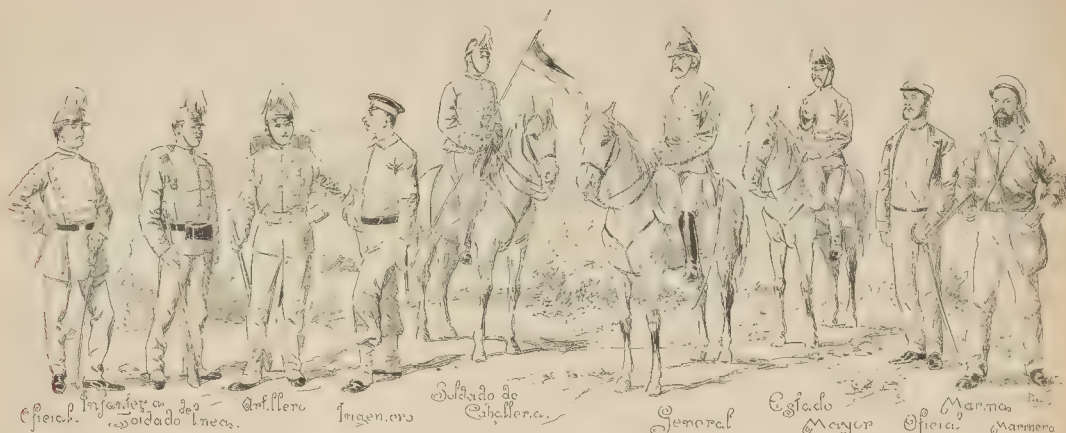 Oficial.
Infantera de
Soldado linea.
Artillero
Ingeniero
Soldado de
Caballera.
General
Estado
Mayor
Marina
Oficial
Marinero